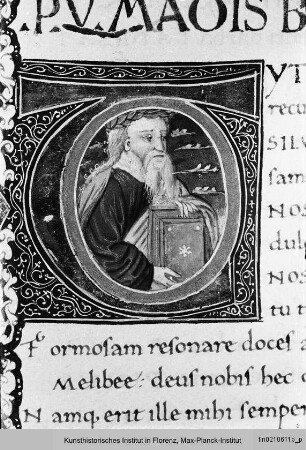 .P.V. MAOIS B
YT
recu
SILV
sam
NOS
dul
NOS
tu t
Formosam resonare doces a
Melibee: deus nobis hec o
Namq. erit ille mihi semper
Kunsthistorisches Institut in Florenz, Max-Planck-Institut
1n0210611c_p